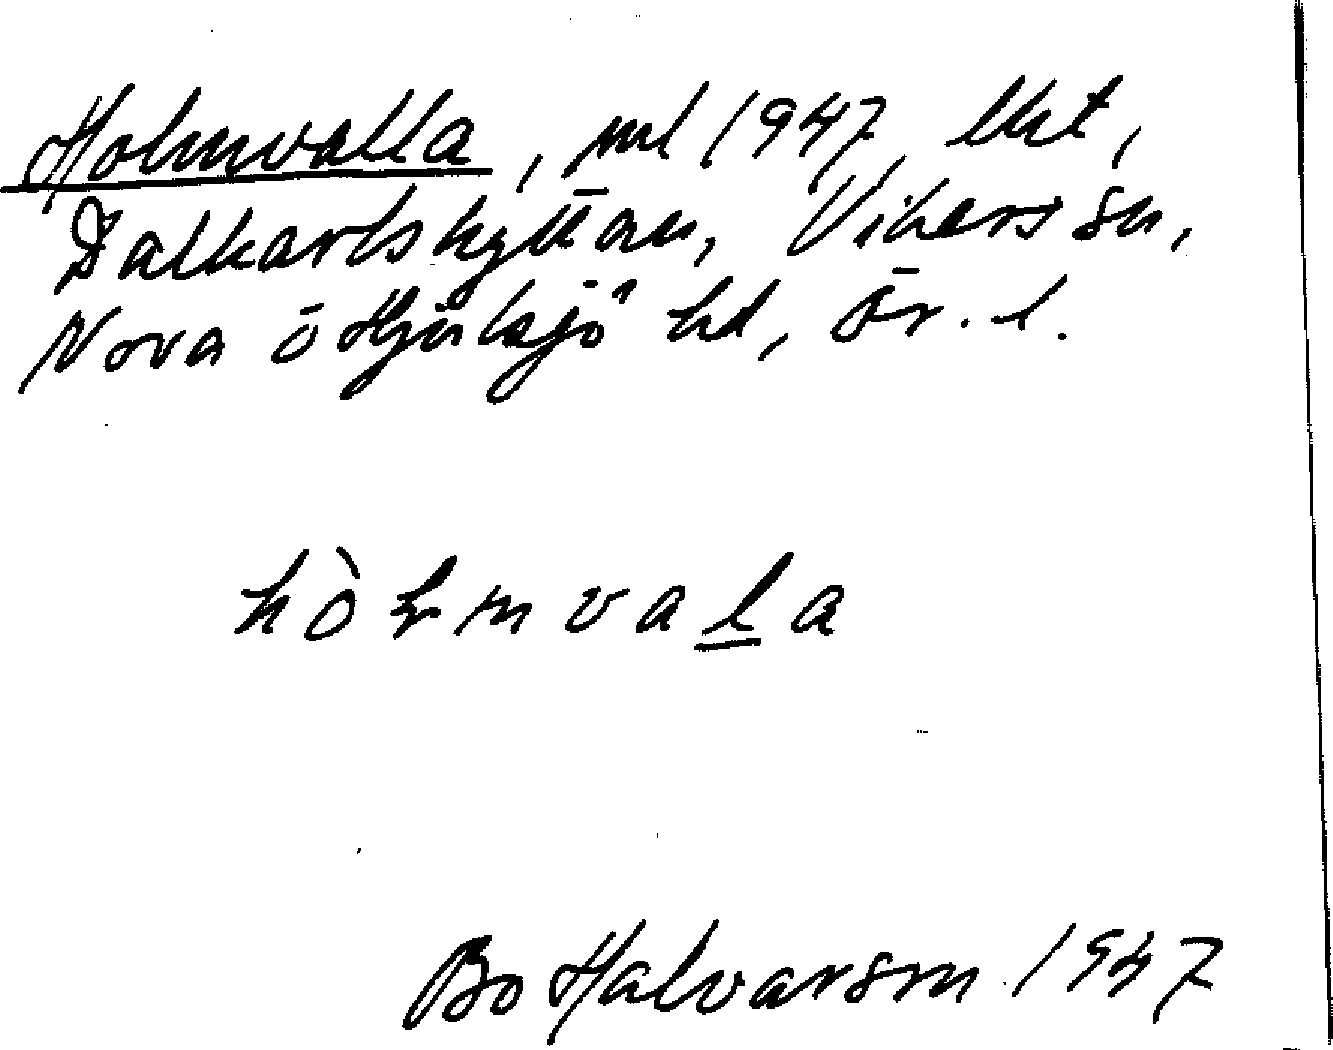 Holmvalla, ml 1947, lht,
Dalkarlshyttan, Vikers sn,
Nora o Hjulsjö hd, Ör. l.
hòɫmvala
Bo Halvarson 1947